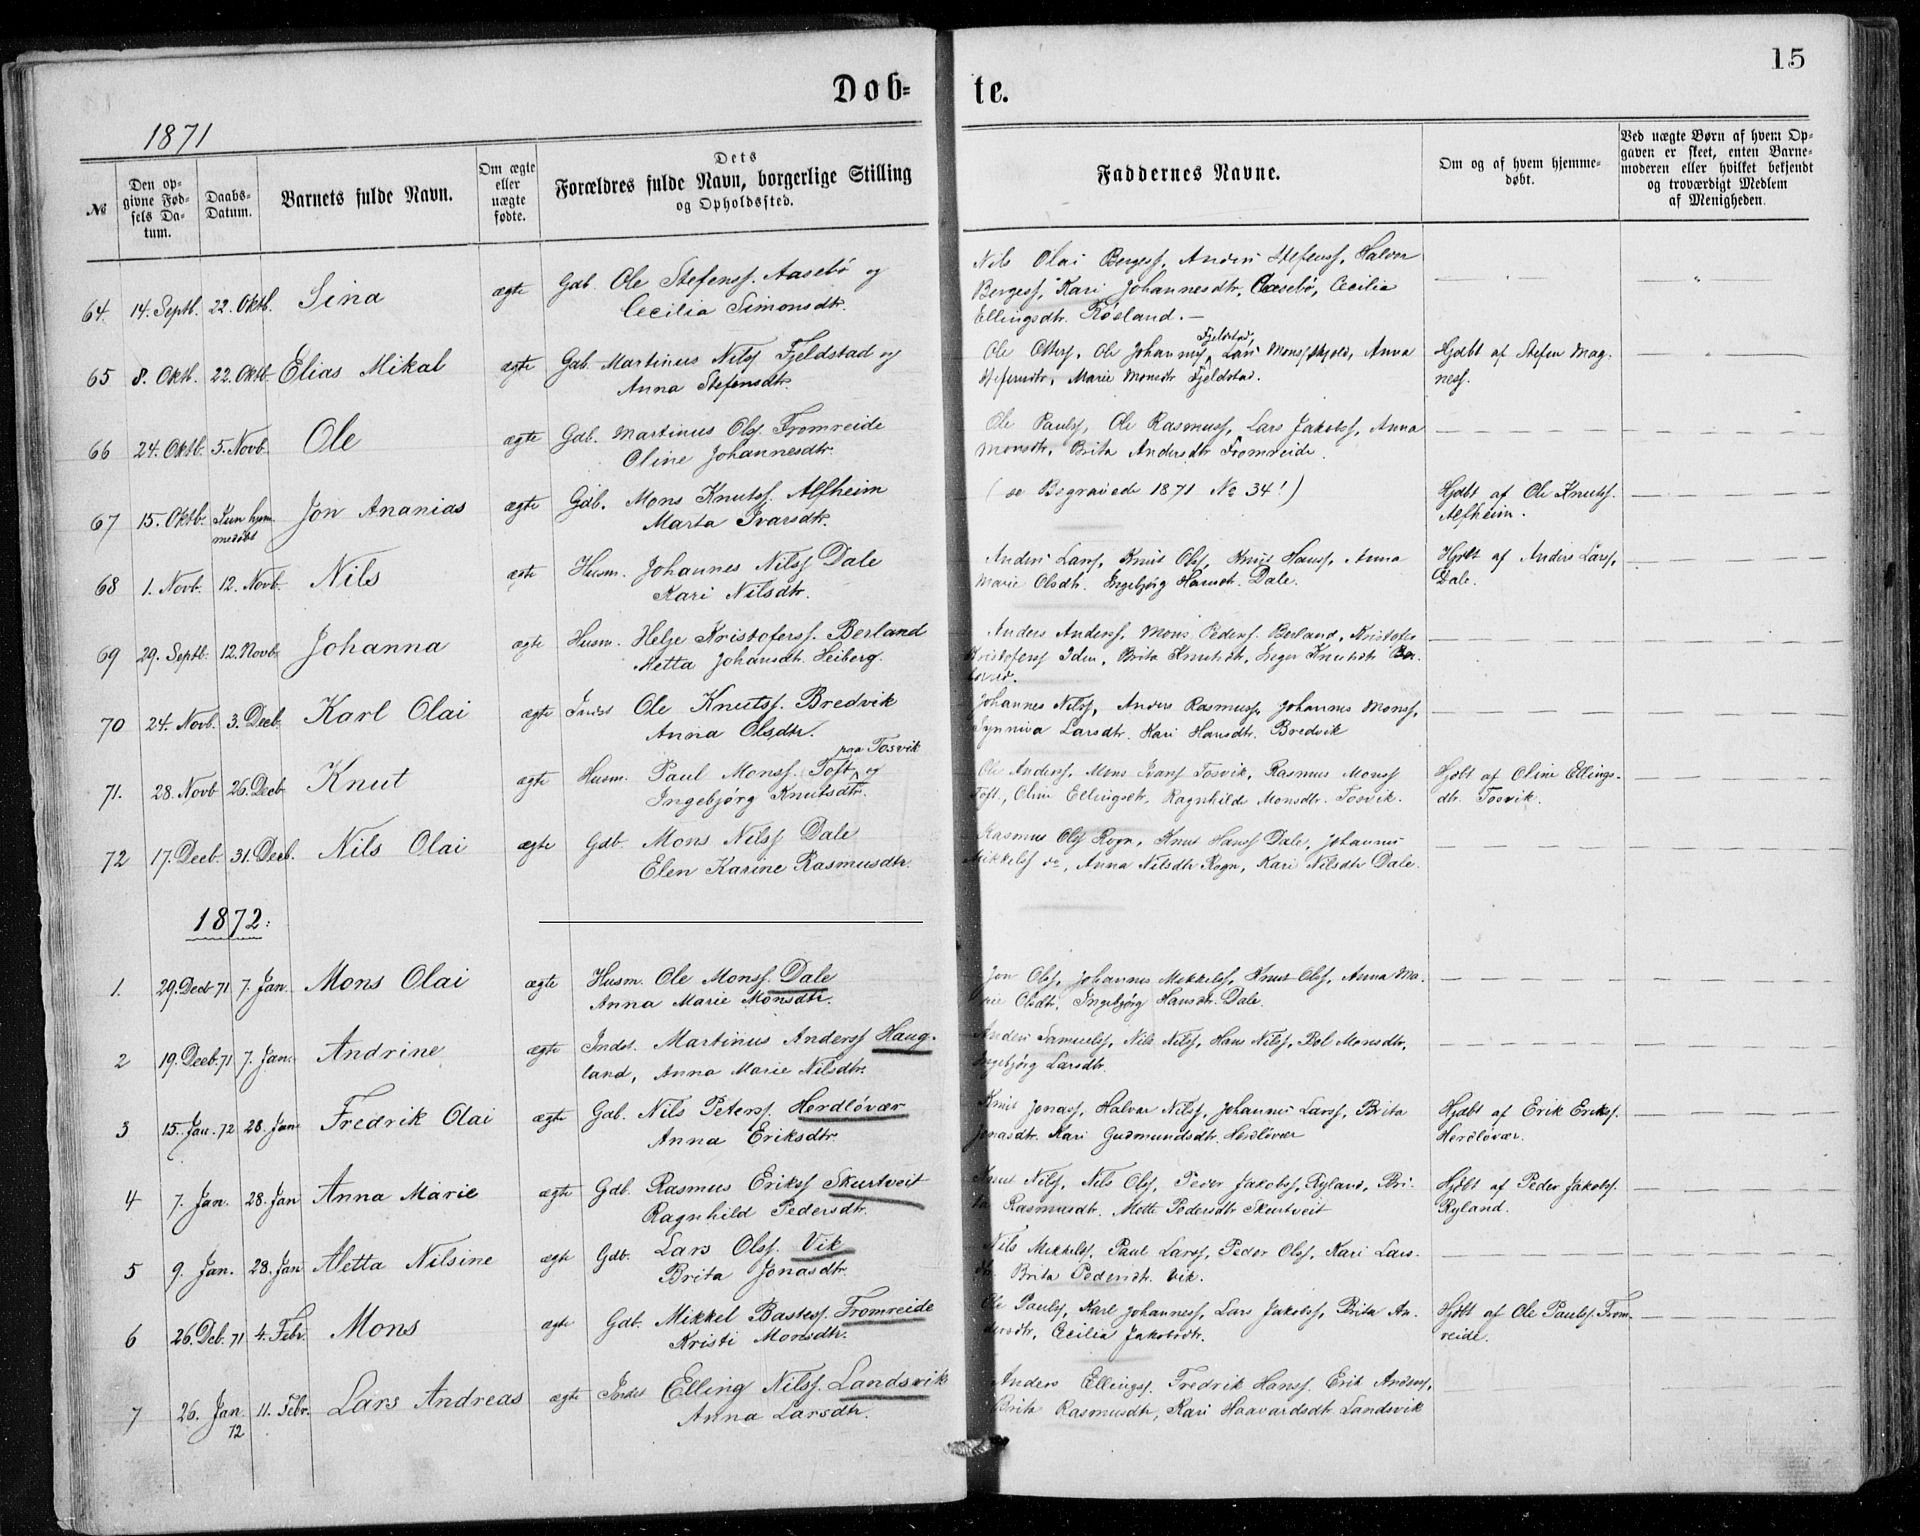 15
Døb=
te.
1871
№
Den op-
givne Fød-
sels Da-
tum.
Daabs-
Datum.
Barnets fulde Navn.
Om ægte
eller
uægte
fødte.
Dets
Forældres fulde Navn, borgerlige Stilling
og Opholdssted.
Faddernes Navne.
Om og af hvem hjemme-
døbt.
Ved uægte Børn af hvem Op-
gaven er skeet, enten Barne-
moderen eller hvilket bekjendt
og troværdigt Medlem
af Menigheden.
64. 14. Septb. 22. Oktb. Sina ægte Gdb. Ole Stefenss. Aasebø og
Cecilia Simonsdtr.
Nils Olai Bergess, Anders Stefenss, Halver
Bergess, Kari Johannesdtr. Aasebø, Cecilia
Ellingsdtr. Røsland. —
65 8. Oktb. 22. Oktb. Elias Mikal ægte Gab. Martinus Nilss Fjeldstad og
Anna Stefensdtr.
Fjeldstad,
Ole Olss, Ole Johanness, Lars Monss Skjold, Anna
Stefensdtr, Marie Monsdtr Fjeldstad.
Hjdbt af Stefen Mag-
ness.
66 24. Oktb. 5. Novb. Ole ægte Gdb. Martinus Olss. Fromreide
Oline Johannesdtr.
Ole Paulss, Ole Rasmuss, Lars Jakobss, Anna
Monsdtr, Brita Andersdtr Fromreide.
67 15. Oktb. Kun hjem-
medøbt Jon Ananias ægte Gdb. Mons Knutss. Alfheim
Marta Ivarsdtr.
(se Begravede 1871 № 34!)
Hjdbt af Ole Knutss.
Alfheim.
68 1. Novb. 12. Novb. Nils ægte Husm. Johannes Nilss Dale
Kari Nilsdtr.
Anders Larss, Knut Olss, Knut Hanss, Anna
Marie Olsdtr. Ingebjørg Hansdtr. Dale.
Hjdbt af Anders Larss,
Dale.
69 29. Septb. 12. Novb. Johanna ægte Husm. Helje Kristoferss. Berland
Metta Johansdtr. Heiberg.
Anders Anderss, Mons Pederss. Berland, Kristofer
Kristoferss Iden, Brita Knutsdtr, Inger Knutsdtr Ber-
land.
70 24. Novb. 3. Decb. Karl Olai ægte Indst Ole Knutss. Bredvik
Anna Olsdtr.
Johannes Nilss, Anders Rasmuss, Johannes Monss,
Synniva Larsdtr. Kari Hansdtr. Bredvik
71. 28. Novb 26. Decb Knut ægte Husm. Paul Monss. Toft paa Tosvik og
Ingebjørg Knutsdtr.
Ole Anderss, Mons Ivarss Tosvik, Rasmus Monss
Toft, Oline Ellingsdtr, Ragnhilde Monsdtr. Tosvik.
Hjdbt af Oline Ellings-
dtr. Tosvik.
72 17. Decb. 31. Decb. Nils Olai ægte Gdb. Mons Nilss Dale
Elen Karine Rasmusdtr.
Rasmus Olss Rogn, Knut Hanss Dale, Johannes
Mikkelss do, Anna Nilsdtr Rogn, Kari Nilsdtr Dale.
1872:
1. 29. Decb 71 7. Jan. Mons Olai ægte Husm. Ole Monss. Dale
Anna Marie Monsdtr.
Jon Olss, Johannes Mikkelss, Knut Olss, Anna Ma-
rie Olsdtr, Ingebjørg Hansdtr. Dale.
2 19. Decb. 71 7. Jan. Andrine ægte Indst. Martinus Anderss Haug-
land, Anna Marie Nilsdtr.
Anders Samuelss, Nils Nilss, Hans Nilss, Bol Monsdtr,
Ingebjørg Larsdtr.
3 15. Jan. 72 28. Jan Fredrik Olai ægte Gdb. Nils Peterss. Herdløvær
Anna Eriksdtr.
Knut Jonass, Halvar Nilss, Johannes Larss, Brita
Jonasdtr. Kari Gudmundsdtr. Herdløvær
Hjdbt af Erik Erikss.
Herdløvær.
4 7. Jan. 28. Jan Anna Marie ægte Gdb. Rasmus Erikss Skurtveit
Ragnhild Pedersdtr.
Knut Nilss, Nils Olss, Peder Jakobss, Ryland, Bri-
ta Rasmusdtr. Mette Pedersdtr Skurtveit
Hjdbt af Peder Jakobs.
Ryland.
5 9. Jan. 28. Jan Aletta Nilsine ægte Gdb. Lars Olss. Vik
Brita Jonasdtr.
Nils Mikkelss, Paul Larss, Peder Olss, Kari Lars-
dtr. Brita Pedersdtr. Vik.
6 26. Deb. 71 4. Febr. Mons ægte Gdb. Mikkel Bastess. Fromreide
Kristi Monsdtr.
Ole Paulss, Karl Johanness, Lars Jakobss, Brita An-
dersdtr, Cecilia Jakobsdtr.
Hjdbt af Ole Paulss. From-
reide.
7 26. Jan
72 11. Febr. Lars Andreas ægte Indst Elling Nilss. Landsvik
Anna Larsdtr.
Anders Ellingss. Fredrik Hanss. Erik Anderss,
Brita Rasmusdtr, Kari Haavardsdtr Landsvik